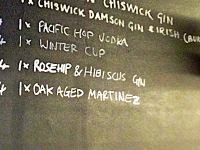 CHISWICK GIN
1x CHISWICK DAMSON GIN & IRISH
4 1x PACIFIC HOP VODKA
1x WINTER CUP
4 1x ROSEHIP & HIBISCUS GIN
4 1x OAK AGED MARTINEZ